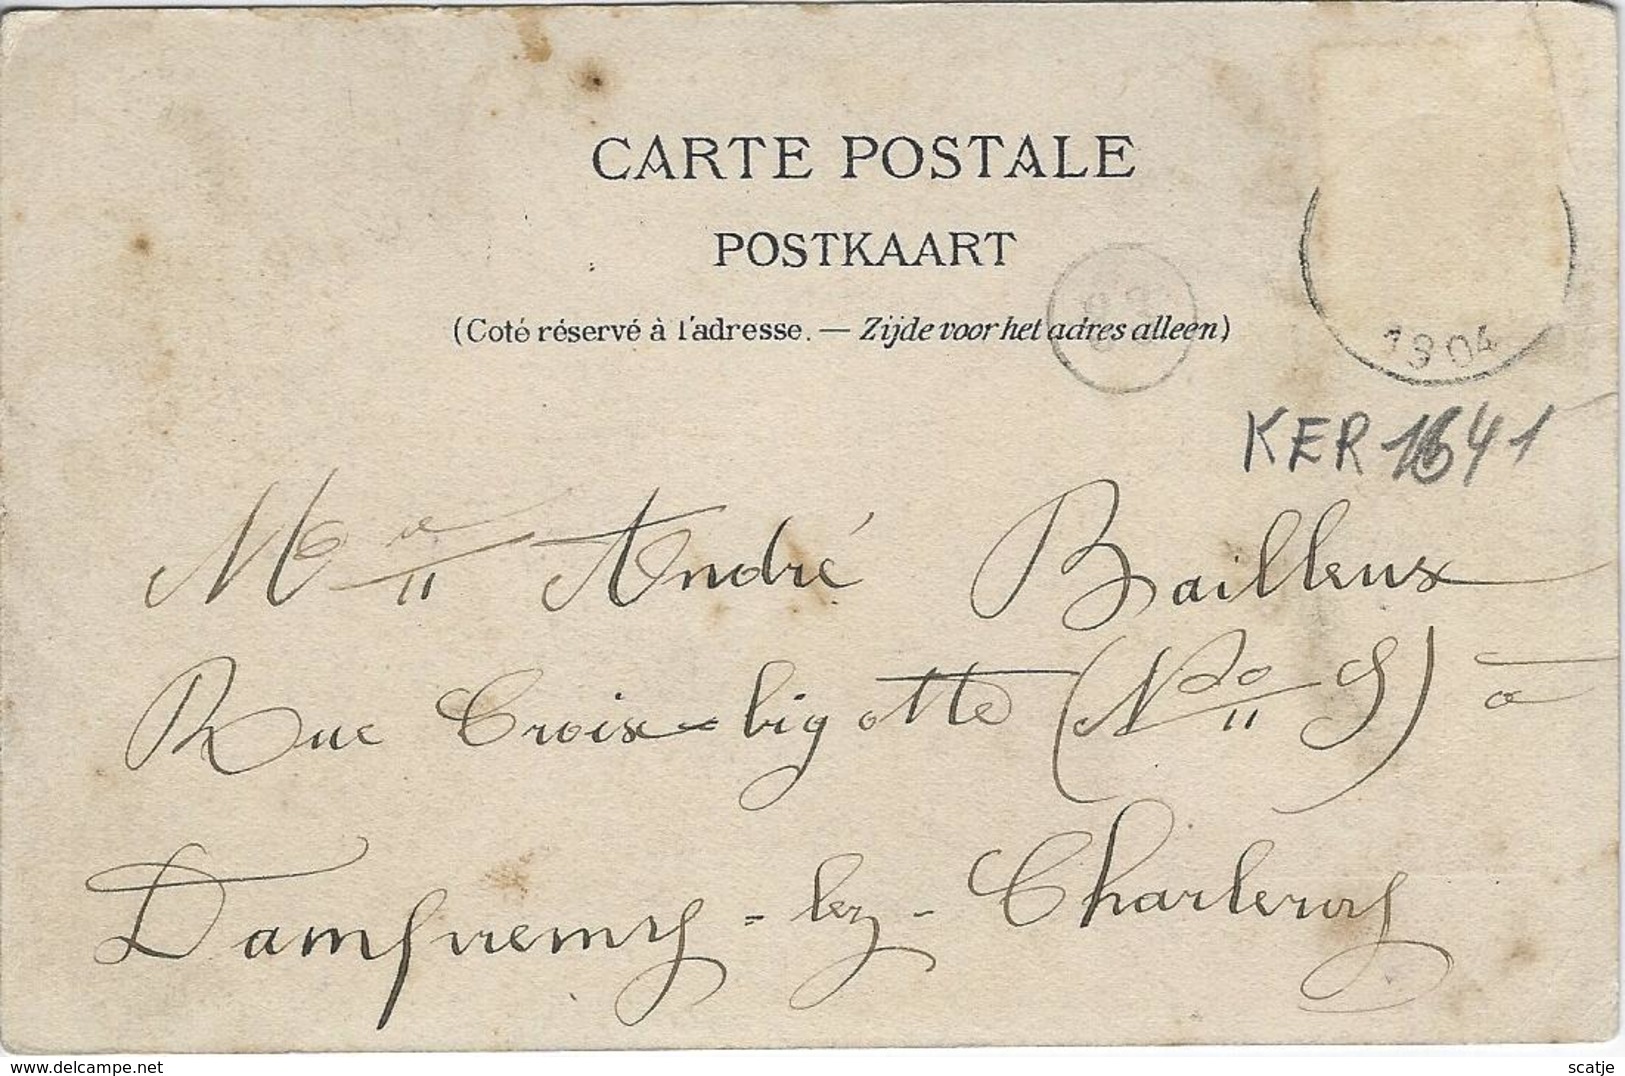 CARTE POSTALE
POSTKAART
(Coté réservé à l'adresse. — Zijde voor het adres alleen)
1904
KER 1641
M André Bailleux
Rue Croix-bigotte (No 9) à
Dampremy-lez-Charleroy
delcampe.net
scatje